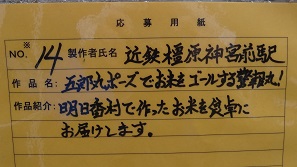 応募用紙
NO.※14 製作者氏名 近鉄橿原神宮前駅
作品名: 五郎丸ポーズでお米をゴールする警報丸!
作品紹介: 明日香村で作ったお米を食卓に
お届けします。